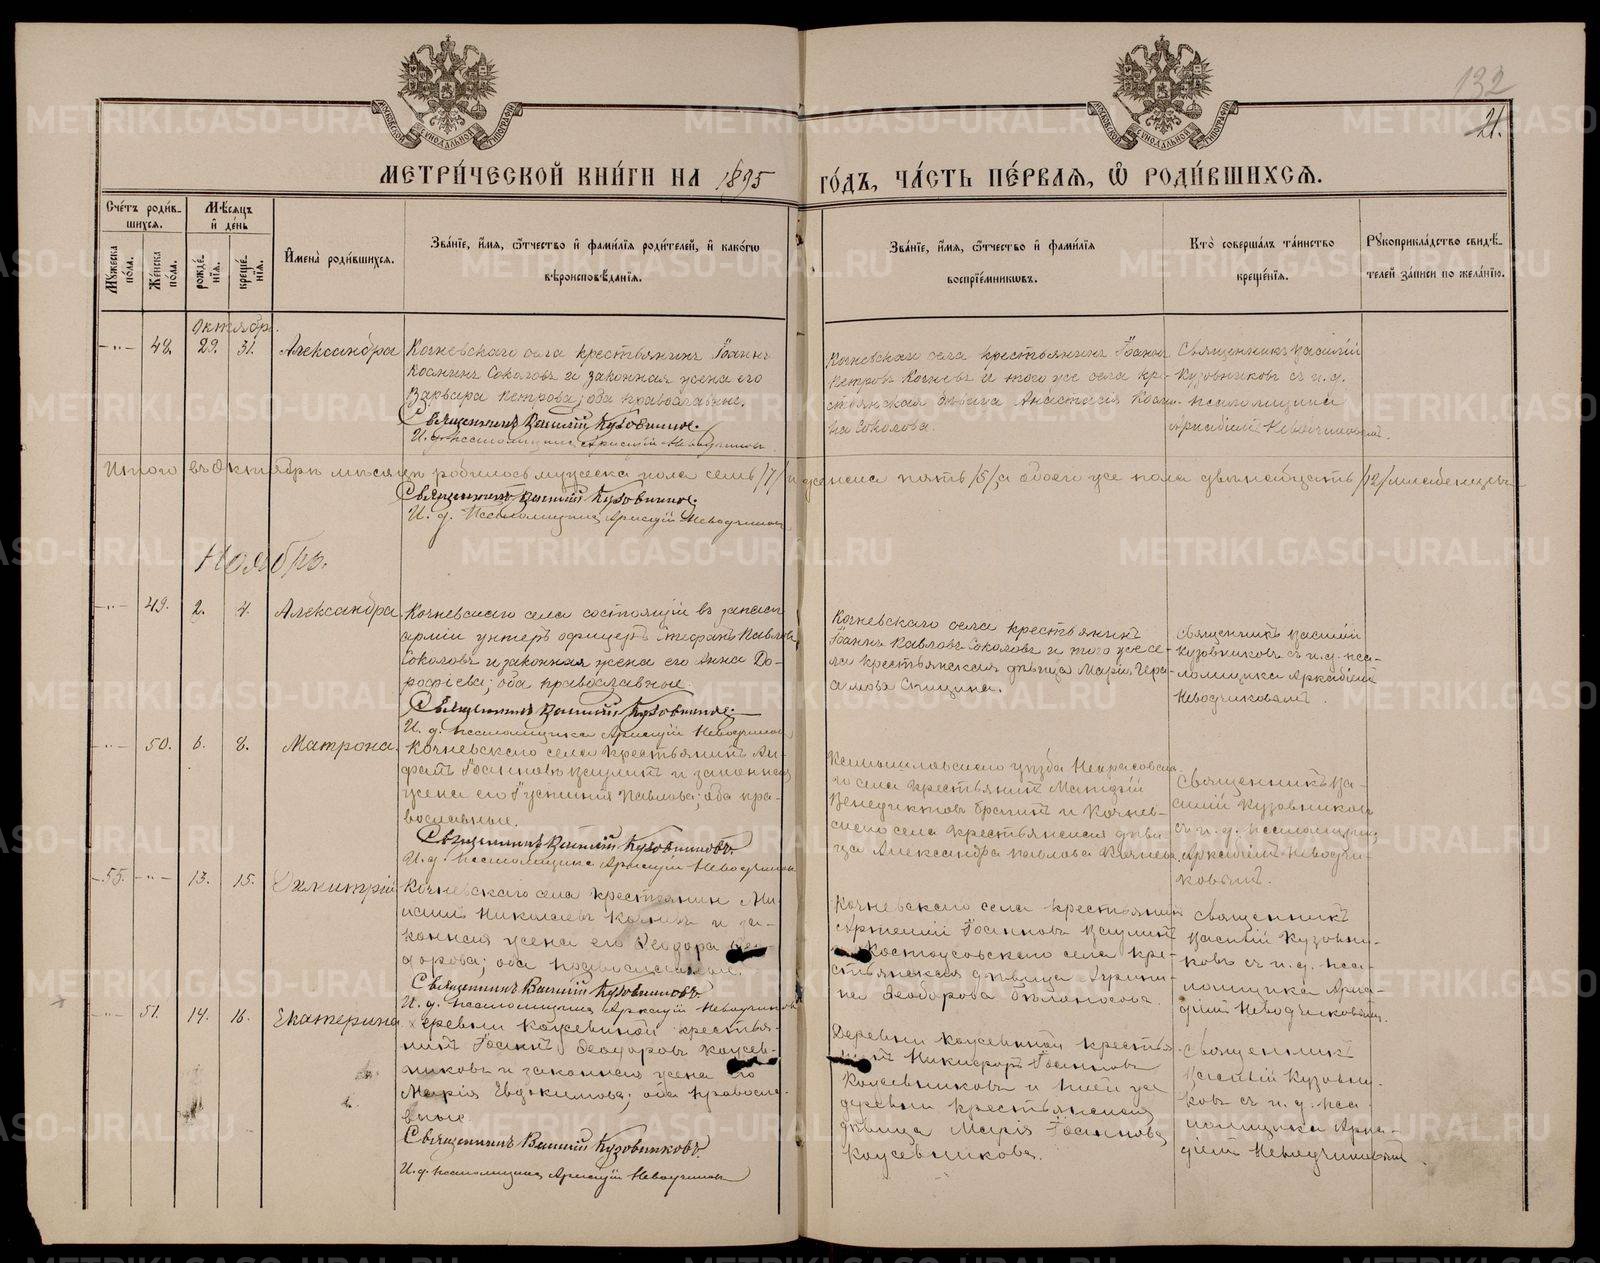 132
21.
МЕТРИ́ЧЕСКОЙ КНИ́ГИ НА 1895 ГО́ДЪ, ЧА́СТЬ ПЕ́РВАЯ, Ѡ РОДИ́ВШИХСЯ.
Сче́тъ роди́в-
шихся.
Мꙋжеска
пола.
Же́нска
пола.
Мѣ́сяцъ
и҆ де́нь
рожде́-
нїя.
креще́-
нїя.
И҆мена̀ роди́вшихся.
Зва́нїе, и҆́мя, ѻ҆́тчество и҆ фами́лїя роди́телей, и҆ како́гѡ
вѣроисповѣ́данїя.
Зва́нїе, и҆́мя, ѻ҆́тчество и҆ фами́лїя
воспрїе́мникѡвъ.
Кто̀ соверша́лъ та́инство
креще́нїя.
Рꙋкоприкла́дство свидѣ́-
телей за́писи по жела́нїю.
Октябр.
48. 29. 31. Александра
Кочневскаго села крестьянинъ Іоаннъ
Космин Соколовъ и законная жена его
Варвара Петрова; оба православные.
Священникъ Василій Кузовниковъ.
И. д. псаломщика Аркадій Неводчиковъ
Кочневскаго села крестьянинъ Іоаннъ
Петровъ Кочневъ и того же села кре-
стьянская дѣвица Анастасія Косми-
на Соколова.
Священникъ Василій
Кузовниковъ съ и. д.
псаломщика
Аркадіемъ Неводчиковымъ.
Итого въ Октябрѣ мѣсяцѣ родилось мужеска пола семь /7/ и женска пять /5/ а обоего же пола двѣнадцать /12/ младенцевъ
Священникъ Василій Кузовниковъ.
И. д. Псаломщика Аркадій Неводчиковъ
Ноябрь.
49. 2. 4. Александра
Кочневскаго села состоящій въ запасѣ
арміи унтеръ офицеръ Стефанъ Павловъ
Соколовъ и законная жена его Анна До-
рофіева; оба православные.
Священникъ Василій Кузовниковъ.
И. д. псаломщика Аркадій Неводчиковъ
Кочневскаго села крестьянинъ
Іоаннъ Павловъ Соколовъ и того же се-
ла крестьянская дѣвица Марія
Спицина.
Священникъ Василій
Кузовниковъ съ и. д. пса-
ломщика Аркадіемъ
Неводчиковымъ.
50. 6. 8. Матрона.
Кочневскаго села крестьянинъ
Іоанновъ и законная
жена его Іустинія Павлова; оба пра-
вославные.
Священникъ Василій Кузовниковъ.
И. д. псаломщика Аркадій Неводчиковъ
Камышловскаго уѣзда Некрасовска-
го села крестьянинъ
Венедиктовъ и Кочнев-
скаго села крестьянская дѣви-
ца Александра Павлова Кочнева.
Священникъ Ва-
силій Кузовниковъ
съ и. д. псаломщика
Аркадіемъ Неводчи-
ковымъ.
55. 13. 15. Димитрій
Кочневскаго села крестьянин Ми-
Николаевъ Кочневъ и за-
конная жена его Ѳеодора Ѳео-
дорова; оба православные.
Священникъ Василій Кузовниковъ.
И. д. псаломщика Аркадій Неводчиковъ
Кочневскаго села крестьянинъ
Артемій Іоанновъ
Костоусовскаго села кре-
стьянская дѣвица Ирини-
на Ѳеодорова Бѣлоносова.
Священникъ
Василій Кузовни-
ковъ съ и. д. пса-
ломщика Арка-
діемъ Неводчиковымъ.
51. 14. 16. Екатерина
Деревни Кожевиной крестья-
нинъ Іоаннъ Ѳеодоровъ Кожев-
никовъ и законная жена его
Марія Евдокимова; оба правосла-
вные
Священникъ Василій Кузовниковъ.
И. д. псаломщика Аркадій Неводчиковъ
Деревни Кожевиной крестья-
нинъ Никифоръ Іоанновъ
Кожевниковъ и той же
деревни крестьянская
дѣвица Марія Іоаннова
Кожевникова.
Священникъ
Василій Кузовни-
ковъ съ и. д. пса-
ломщика Арка-
діемъ Неводчиковымъ
METRIKI.GASO-URAL.RU